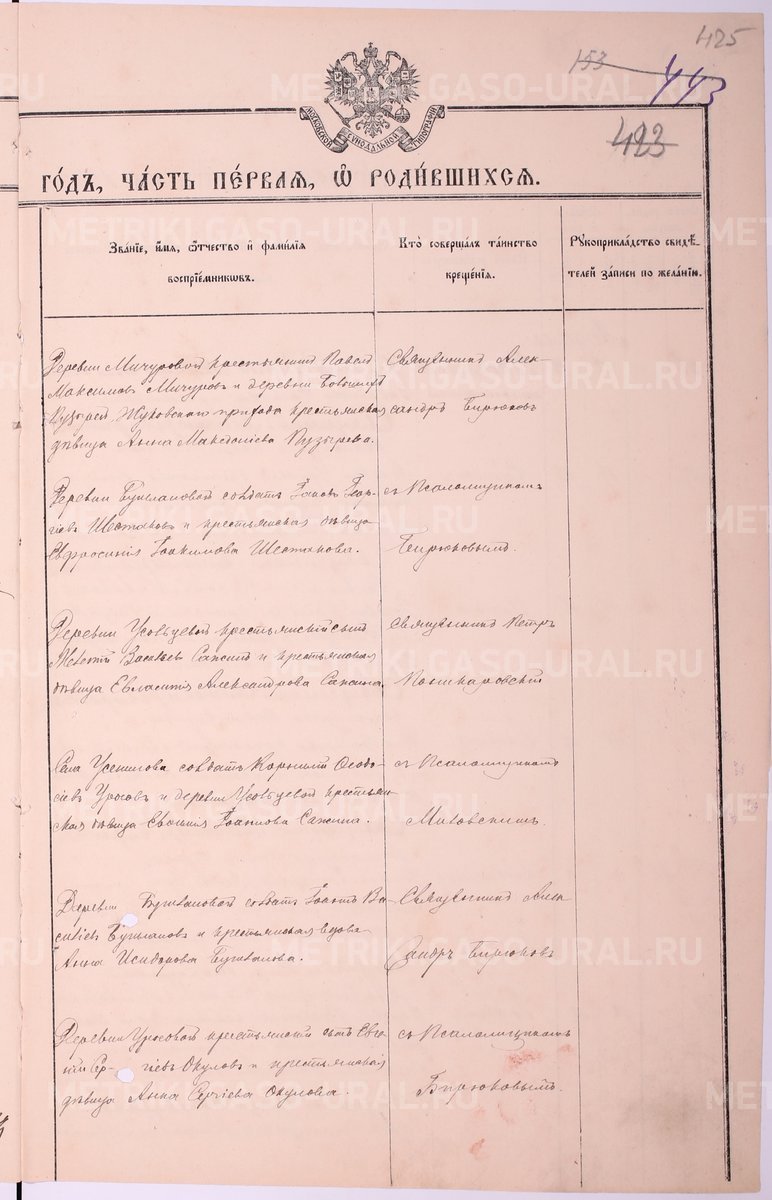 425
153
443
423
МОСКОВСКОЙ СѴНОДАЛЬНОЙ ТИПОГРАФІИ
ГО́ДЪ, ЧА́СТЬ ПЕ́РВАЯ, Ѡ҆ РОДИ́ВШИХСЯ.
Зва́нїе, и҆́мя, ѻ҆́тчество и҆ фами́лїя
воспрїе́мниковъ.
Кто̀ соверша́лъ та́инство
креще́нїя.
Рꙋкоприкла́дство свидѣ́-
телей за́писи по жела́нїю.
Деревни Мичуровой крестьянинъ Павелъ
Максимовъ Мичуровъ и деревни
Жуковскаго прихода крестьянская
дѣвица Анна Македонiева Пузырева.
Священникъ Алек-
сандръ Бирюковъ
Деревни солдатъ Іаковъ Геор-
гіевъ Шестаковъ и крестьянская дѣвица
Евфросинія Іоакимова Шестакова.
съ Псаломщикомъ
Бирюковымъ.
Деревни Усольцевой крестьянскій сынъ
Василіевъ Сажинъ и крестьянская
дѣвица Евласпія Александрова Сажина.
Священникъ Петръ
Села солдатъ Корнилій Ѳеодо-
сіевъ Уросовъ и деревни Усольцевой крестьян-
ская дѣвица Евгенія Іоаннова Сажина.
съ Псаломщикомъ
Деревни Бушлановой солдатъ Іоаннъ Ва-
силіевъ Бушлановъ и крестьянская вдова
Анна Исидорова Бушланова.
Священникъ Алек
сандръ Бирюковъ
Деревни Уросовой крестьянскій сынъ Евге-
ній Сер- гіевъ Окуловъ и крестьянская
дѣвица Анна Сергіева Окулова.
съ Псаломщикомъ
Бирюковымъ.
METRIKI.GASO-URAL.RU